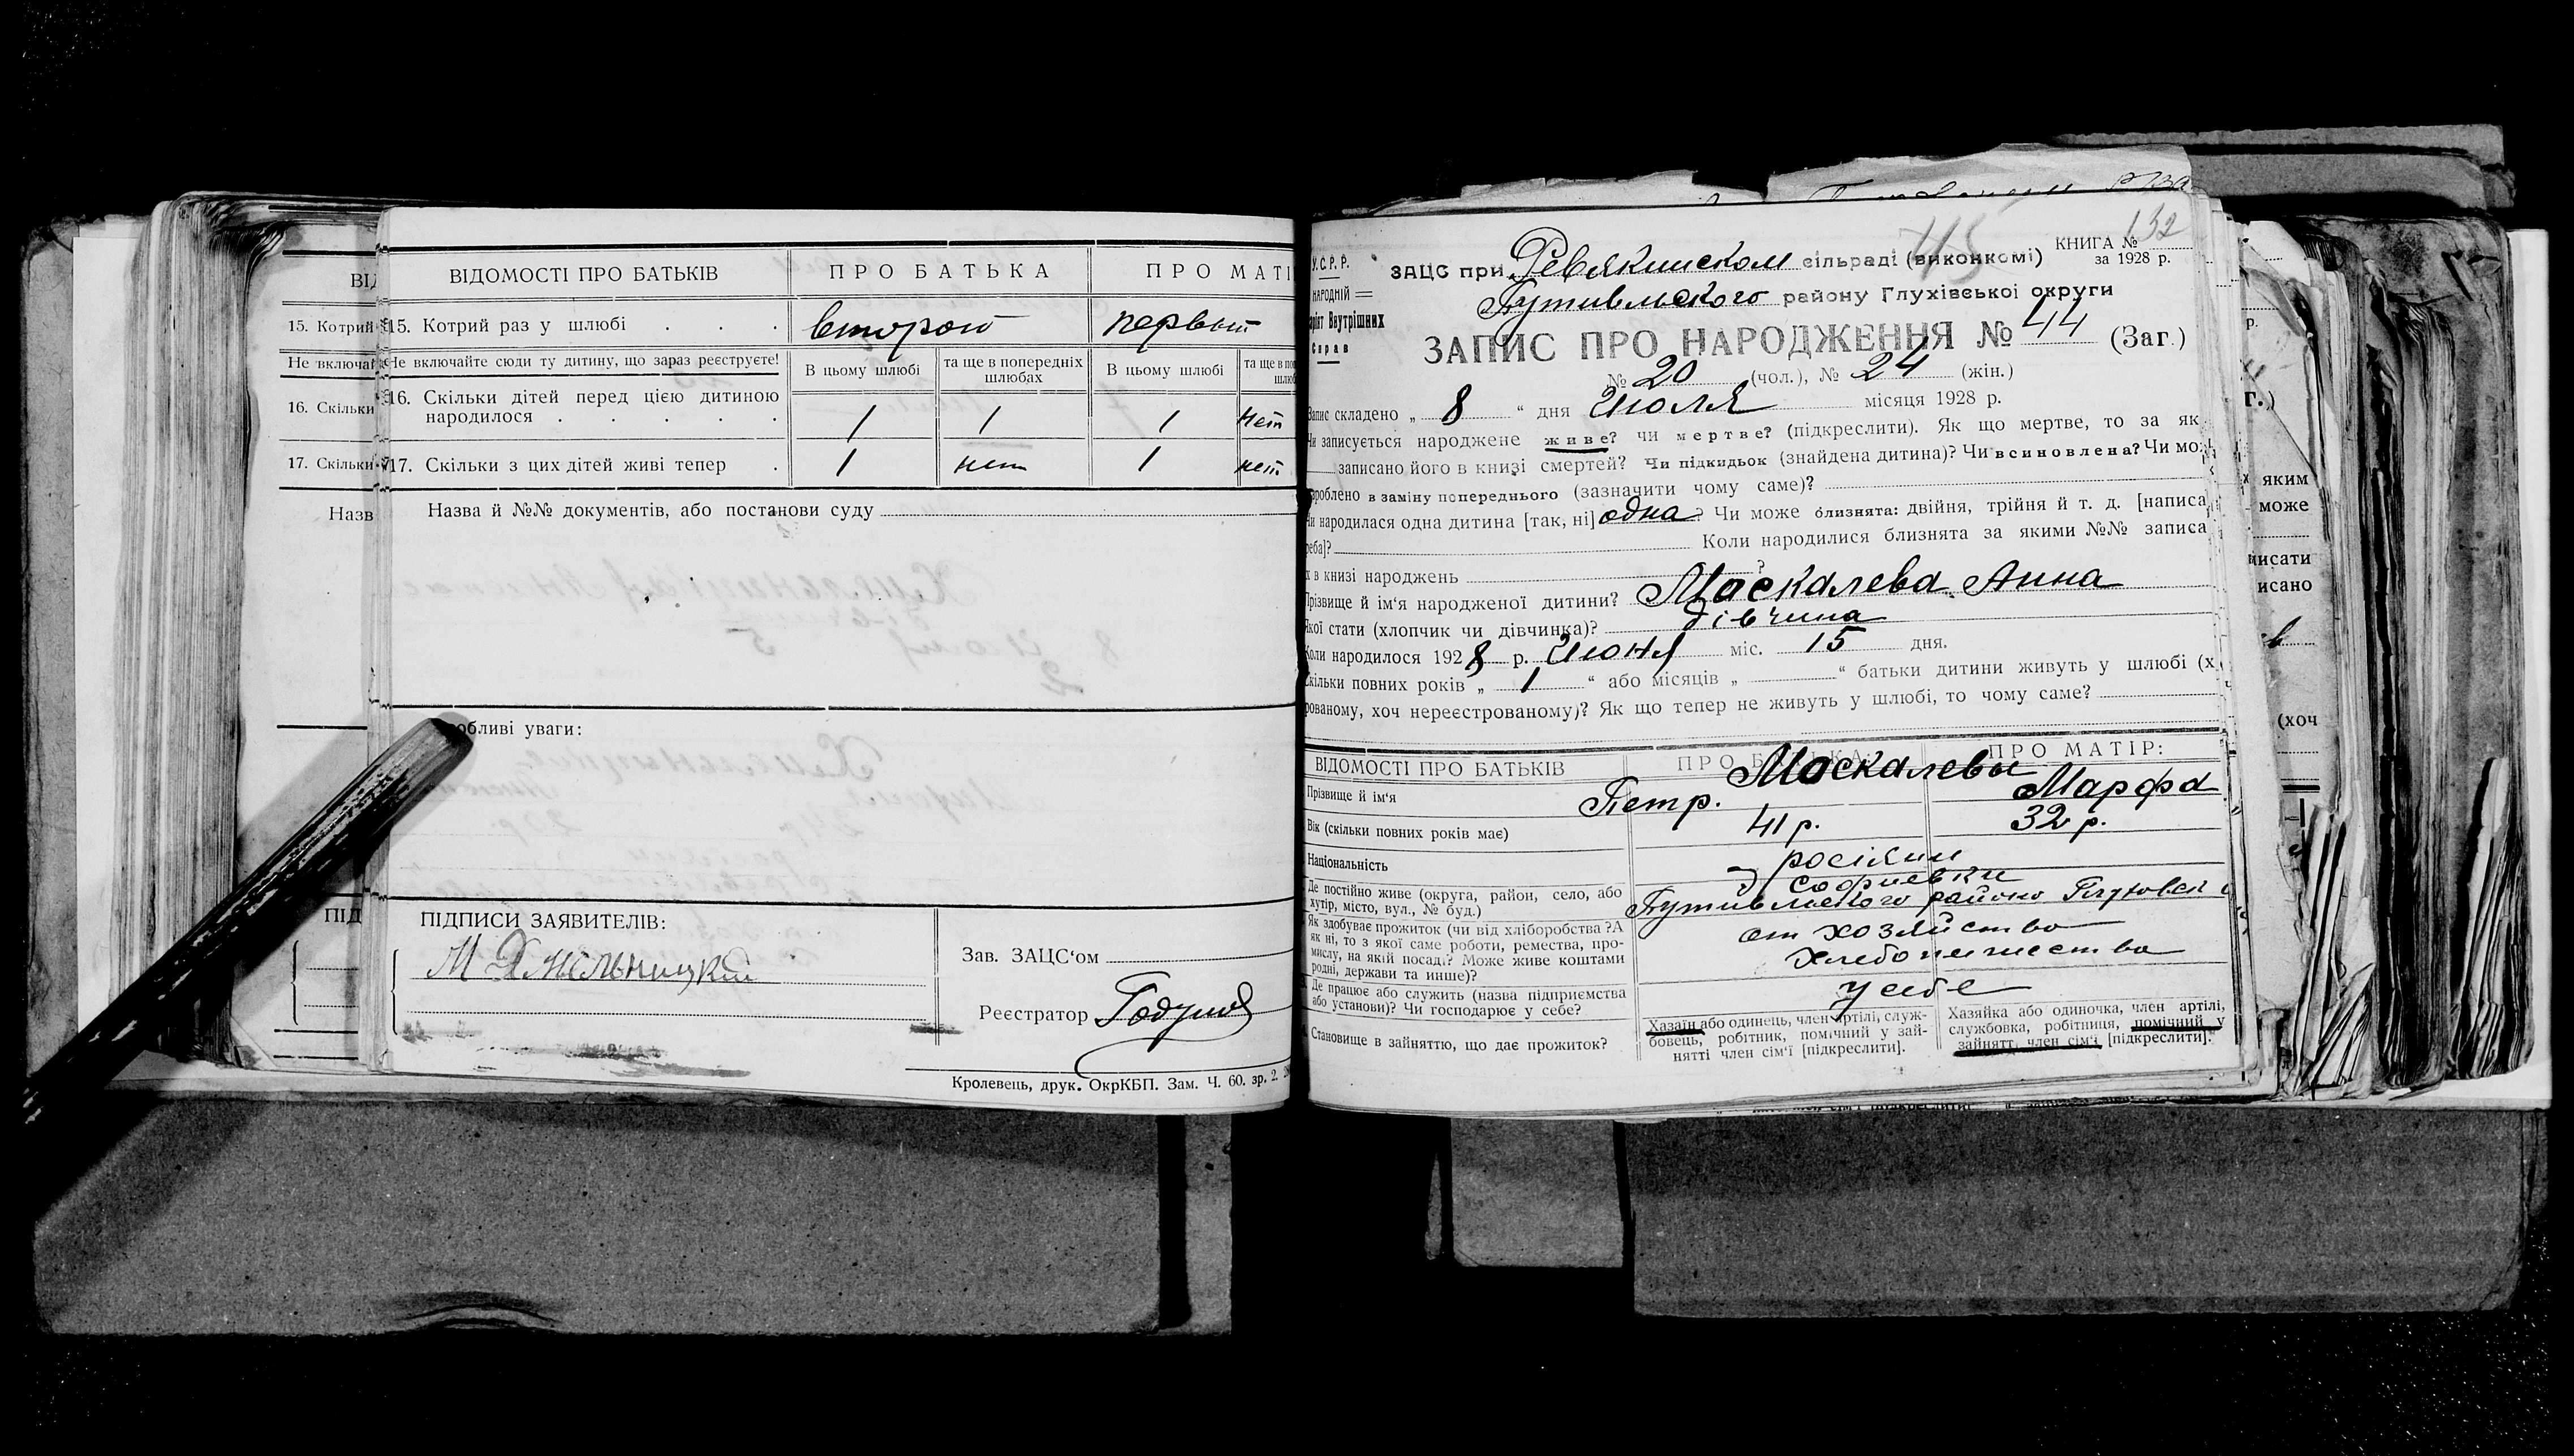 ВІДОМОСТІ ПРО БАТЬКІВ
ПРО БАТЬКА
ПРО МАТІ
15. Котрий
15. Котрий раз у шлюбі . . .
второй
первый
Не включай
Не включайте сюди ту дитину, що зараз реєструєте!
В цьому шлюбі
та ще в попередніх шлюбах
В цьому шлюбі
16. Скільки
16. Скільки дітей перед цією дитиною
народилося . . . . .
1
1
1
нет
17. Скільки
17. Скільки з цих дітей живі тепер .
1
нет
1
нет
Назв
Назва й №№ документів, або постанови суду
обливі уваги:
ПІД
ПІДПИСИ ЗАЯВИТЕЛІВ:
Зав. ЗАЦС‘ом
Реєстратор
Кролевець, друк. ОкрКБП. Зам. Ч. 60. зр. 2.
У.С.Р.Р.
НАРОДНІЙ
Внутрішних
Справ
115
132
КНИГА №
за 1928 р.
ЗАЦС при Ревякинском сільраді (виконкомі)
Путивльского району Глухівської округи
ЗАПИС ПРО НАРОДЖЕННЯ № 44 (Заг.)
№ 20 (чол.), № 24 (жін.)
Запис складено „ 8 “ дня Июля місяця 1928 р.
Чи записується народжене живе? чи мертве? (підкреслити). Як що мертве, то за як
записано його в книзі смертей? Чи підкидьок (знайдена дитина)? Чи всиновлена? Чи мо
зроблено в заміну попереднього (зазначити чому саме)?
Чи народилася одна дитина [так, ні] одна? Чи може близнята: двійня, трійня й т. д. [написа
реба]? Коли народилися близнята за якими №№ записа
х в книзі народжень ?
Прізвище й ім‘я народженої дитини? Маскалева Анна
Якої стати (хлопчик чи дівчинка)? дівчина
Коли народилося 1928 р. Июня міс. 15 дня.
Скільки повних років „ 1 “ або місяців „ “ батьки дитини живуть у шлюбі (х
рованому, хоч нереєстрованому)? Як що тепер не живуть у шлюбі, то чому саме?
ВІДОМОСТІ ПРО БАТЬКІВ
ПРО БАТЬКА:
ПРО МАТІР:
Маскалевы
Прізвище й ім‘я
Петр.
Марфа
Вік (скільки повних років має)
41 р.
32 р.
Національність
росіяни
Де постійно живе (округа, район, село, або
хутір, місто, вул., № буд.)
Софиевки
Путивльского района Глуховск
Як здобуває прожиток (чи від хліборобства? А
як ні, то з якої саме роботи, ремества, про-
мислу, на якій посаді? Може живе коштами
родні, держави та инше)?
от хозяйства
хлебопашества
Де працює або служить (назва підприємства
або установи)? Чи господарює у себе?
у себе
Становище в зайняттю, що дає прожиток?
Хазаїн або одинець, член артілі, служ-
бовець, робітник, помічний у зай-
нятті член сім‘ї [підкреслити].
Хазяйка або одиночка, член артілі,
службовка, робітниця, помічний у
зайнятті член сім‘ї [підкреслити].
р.
Г.)
яким
може
писати
исано
(хоч